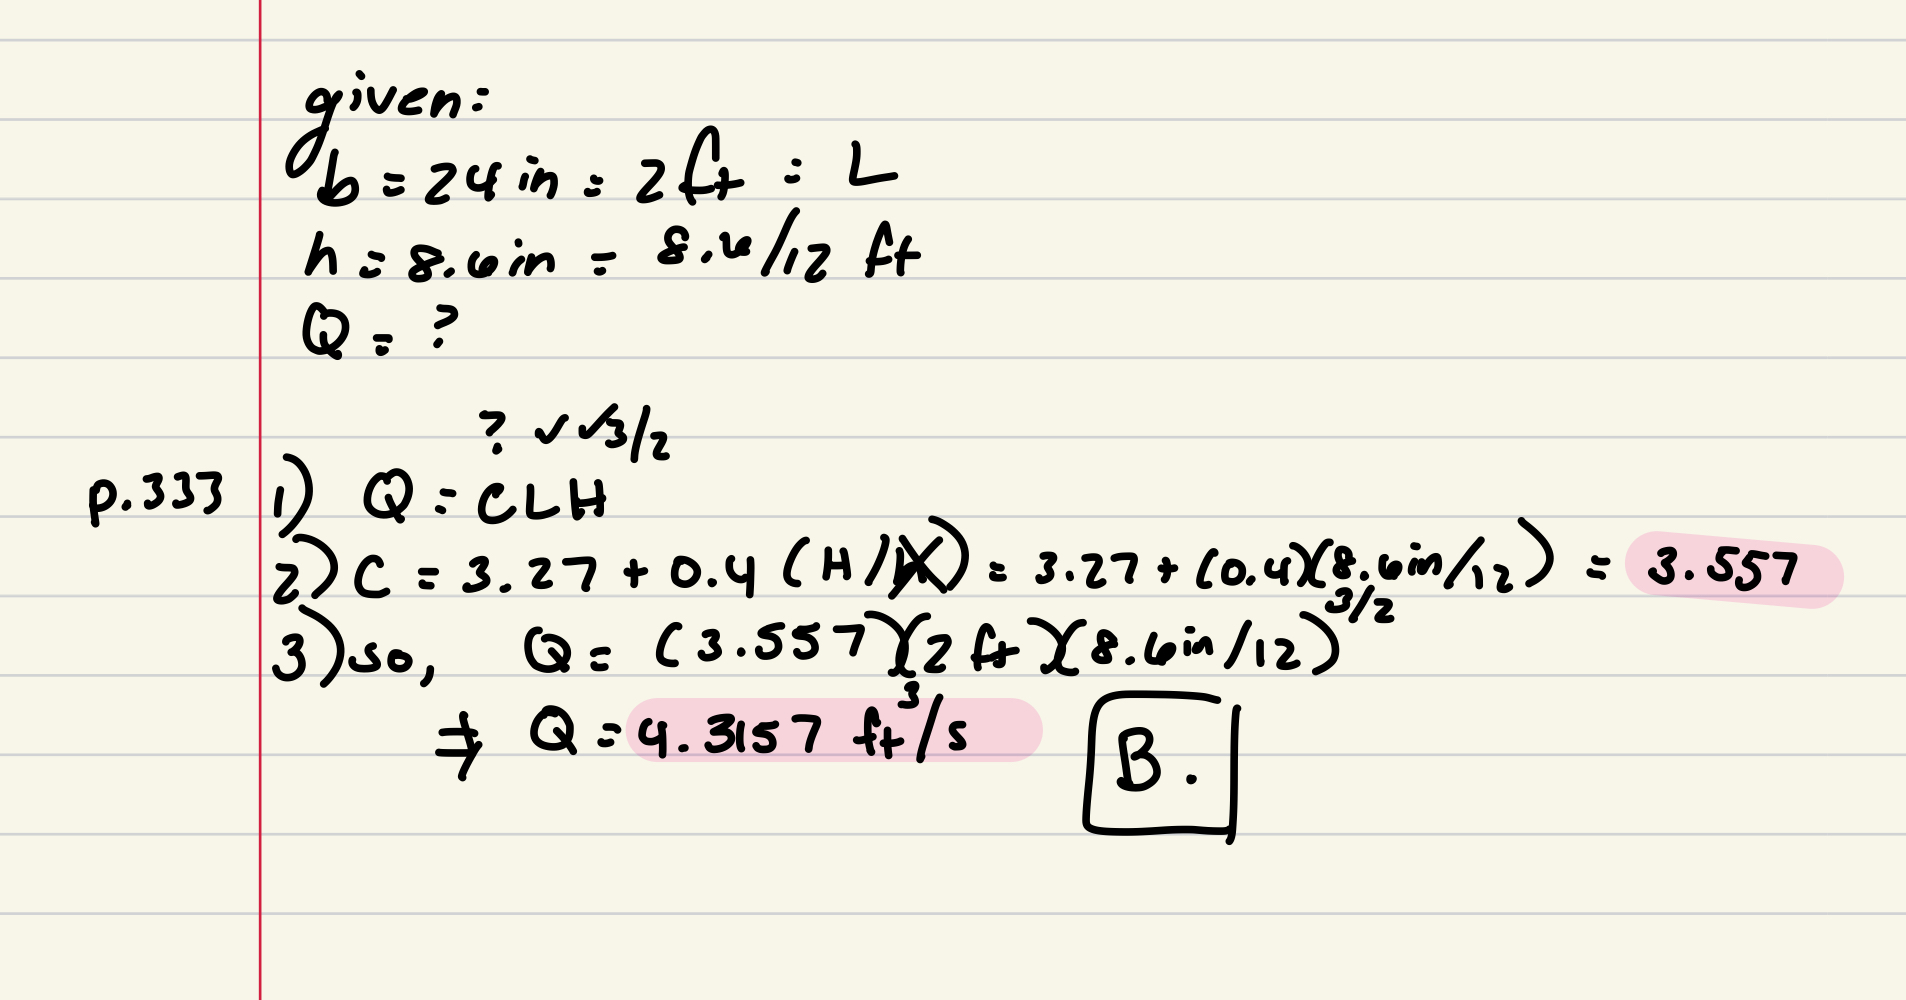 given:
b = 24 in = 2 ft = L
h = 8.6in = 8.6/12 ft
Q = ?
? ✓ ✓3/2
p.333 1) Q = CLH
2) C = 3.27 + 0.4 (H/h) = 3.27 + (0.4)(8.6in/12) = 3.557
3) so, Q = (3.557)(2 ft)(8.6in/12)^3/2
⇒ Q = 4.3157 ft³/s B.